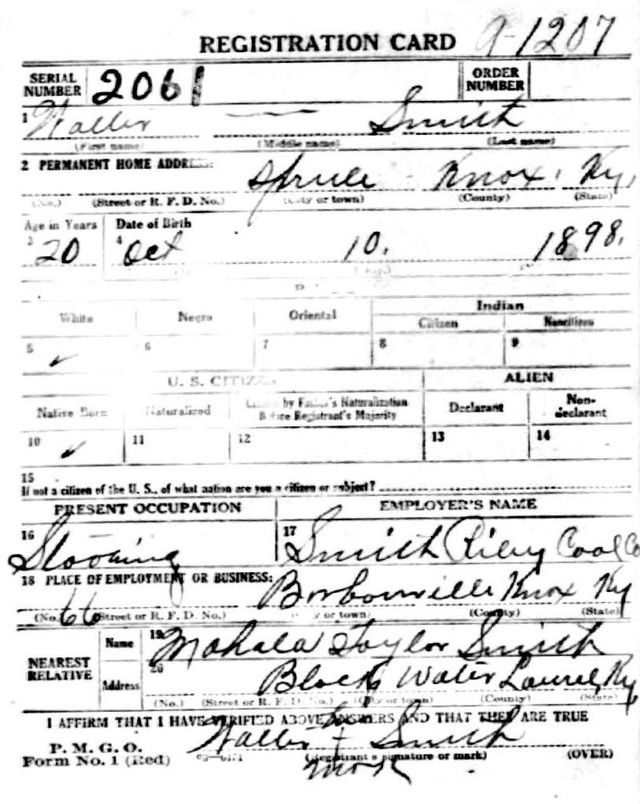 REGISTRATION CARD A-1207
SERIAL NUMBER 2061 ORDER NUMBER
1 Walter — — Smith
(First name) (Middle name) (Last name)
2 PERMANENT HOME ADDRESS: Spruce Knox, Ky,
(No.) (Street or R. F. D. No.) (City or town) (County) (State)
Age in Years Date of Birth
3 20 4 Oct 10. 1898.
White Negro Oriental Indian
Citizen Noncitizen
5 ✓ 6 7 8 9
U. S. CITIZEN ALIEN
Native Born Naturalized Citizen by Father's Naturalization Before Registrant's Majority Declarant Non-declarant
10 ✓ 11 12 13 14
15
If not a citizen of the U. S., of what nation are you a citizen or subject?
PRESENT OCCUPATION EMPLOYER'S NAME
16 17 Smith Riley Coal Co
18 PLACE OF EMPLOYMENT OR BUSINESS:
66 Borbourville Knox Ky
(No.) (Street or R. F. D. No.) (City or town) (County) (State)
NEAREST RELATIVE Name 19 Mahala Taylor Smith
Address 20 Black Water Laurel, Ky,
(No.) (Street or R. F. D. No.) (City or town) (County) (State)
I AFFIRM THAT I HAVE VERIFIED ABOVE ANSWERS AND THAT THEY ARE TRUE
P. M. G. O.
Form No. 1 (Red) Walter Smith
(Registrant's signature or mark) (OVER)
mark